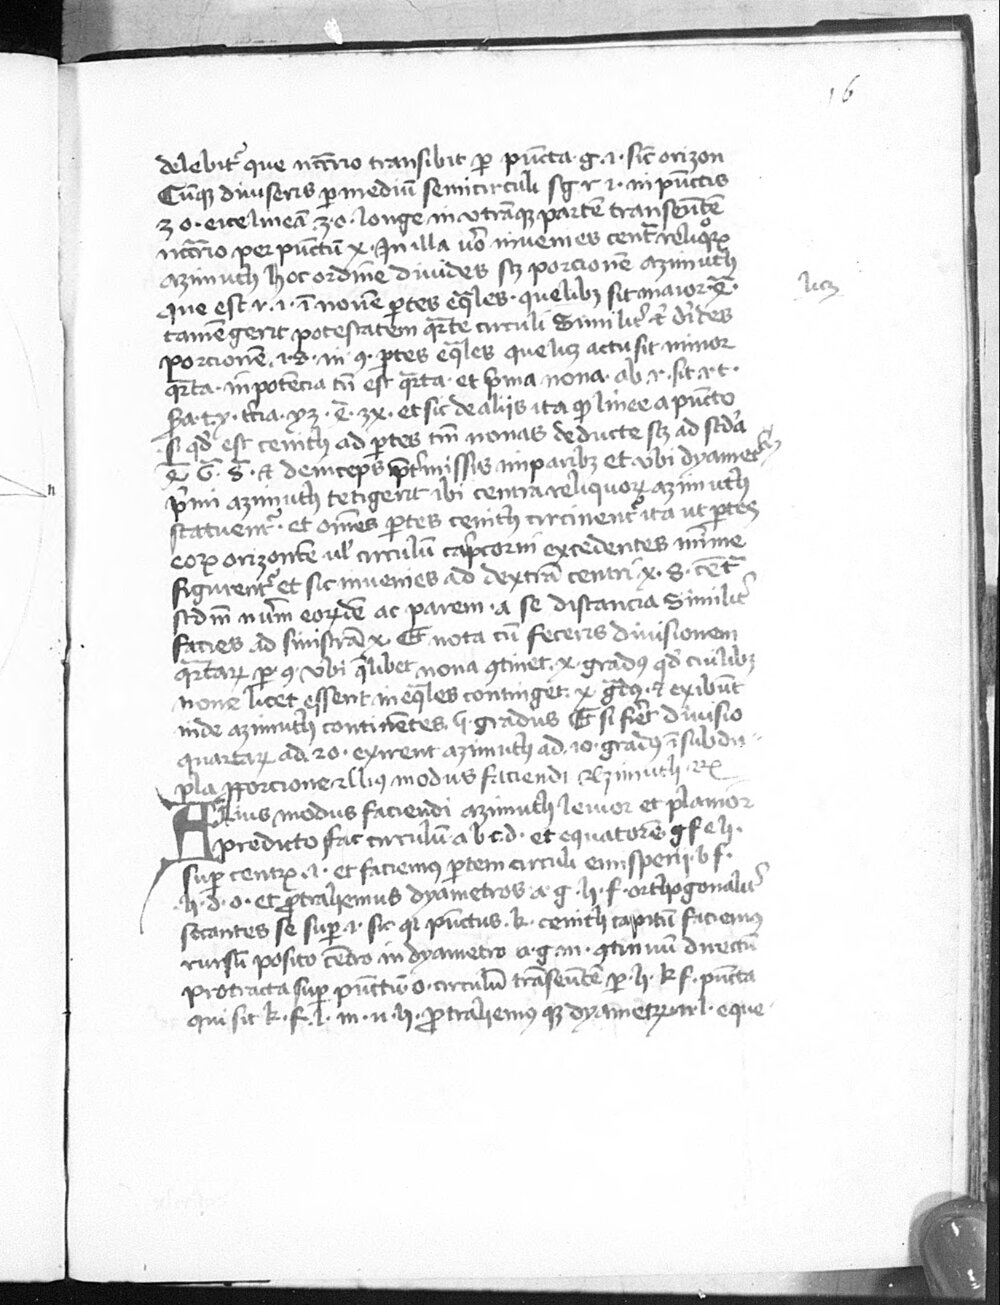 16
delebit᷑ que nc̄cīo transibit ꝑ pūcta g. i. sic̄ orizon
Cūq̄ diuiseris ꝑ mediū semicirculi s g r i. in pūctis
z o. eice lineā .z.o. longe in vtrāq̄ partē transeūtē
nc̄cīo per pūctū x. In illa vo inuenies cent̄ reliq̄oꝝ
azimuth hoc ordine diuides sꝫ porcionē azimuth
que est r. i. ī nouē ꝑtes eq̄les. quelibꝫ sit maior q̄ꝛ.
licꝫ
tamē gerit potestatem q̄rte circuli Similit᷑ et di᷑des
porcionē. i. s. in 9. ꝑtes eq̄les que licꝫ actu sit minor
q̄rta. in potēcia tn̄ est q̄rta. et pīma nona. ab r. sit r t.
t y. tc̄ia. y z. z x. et sic de alijs ita ꝙ linee a pūcto
s qd᷑ est cenith ad ꝑtes tm̄ nonas deducte sꝫ ad scd᷑ā
et deinceps ꝑt᷑missis imparibꝫ et vbi dyamet᷑
pīmi azimuth tetigerit ibi centra reliquoꝝ azimuth
statuent᷑. et om̄es ꝑtes cenith circinent᷑ ita ut ꝑtes
eoꝝ orizontē ul᷑ circulū cap̄corni excedentes mīme
figurent᷑ et sic inuenies ad dextrā centri x. 8. cēt̄
scd̄m nūm eorūdē ac parem. a se distancia Similit᷑
facies ad sinistrā x. Et nota cū feceris diuisionem
q̄rtaꝝ ꝑ 9. vbi q̄libet nona ꝯtinet. x. gradꝰ qd᷑ cuilibꝫ
none licet essent ineq̄les continget. x gradꝰ. et exibūt
inde azimuth continētes. 5 gradus Et si fie᷑t diuisio
quartaꝝ ad. 20. exirent azimuth ad. 10. gradꝰ ī subdu
pla ꝓporcione Alius modus faciendi Azimuth. Rꝫ
Alius modus faciendi azimuth leuior et planior
predicto fac circulū a b c. d. et equatorē g f e h.
suꝑ centꝝ .i. et faciemꝰ ꝑtem circuli emisperij. b f.
.h. d. o. et ꝓtrahemus dyametros a. g. h. f. orthogonalit᷑
secantes se suꝑ i. sic. qꝛ pūctus. k. cenith capitū faciemꝰ
rursū posito cēdro in dyametro a. g. m. ꝯtinuū directū
protracta suꝑ pūctū o. circulū trāseūtē ꝑ. h. k f. pūcta
qui sit k. f. l. m. n. h. ꝓtrahemꝰ qꝫ dyametꝝ n l. eque
h